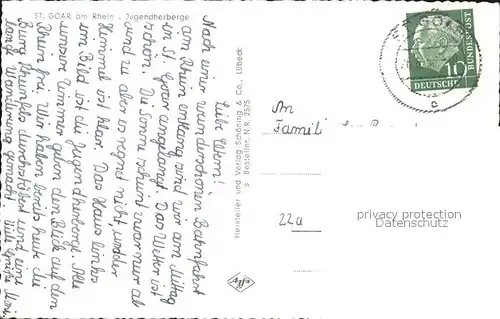 ST. GOAR am Rhein - Jugendherberge
Liebe Eltern!
Nach einer wunderschönen Bahnfahrt
am Rhein entlang sind wir am Mittag
in St. Goar angelangt. Das Wetter ist
schön. Die Sonne scheint zwar nur ab
und zu aber es regnet nicht, und der
Himmel ist klar. Das Haus links
im Bild ist die Jugendherberge. Alle
unsere Zimmer geben den Blick auf den
Rhein frei. Wir haben bereits heute die
Burg Rheinfels durchstöbert und eine
Wanderung gemacht. Viele Grüße
Hersteller und Verlag Schöning & Co., Lübeck
Bestellnr. N.R. 2575
DEUTSCHE BUNDESPOST
10
An
Famili
22a
privacy protection
Datenschutz